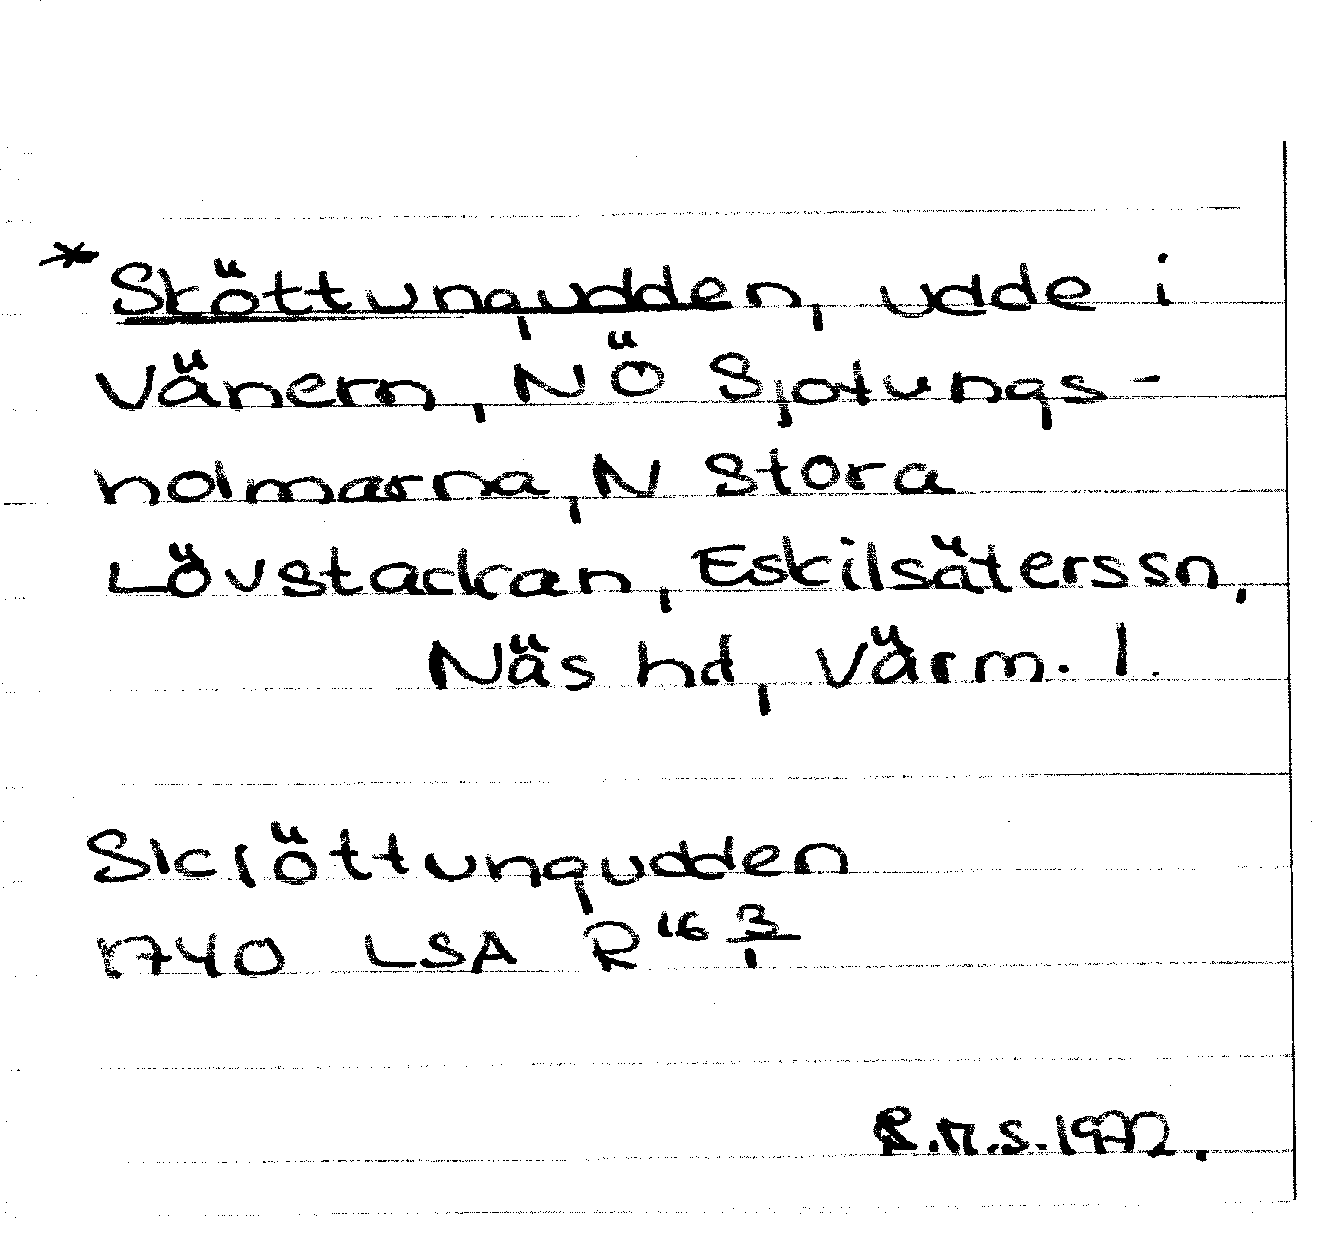 * Sköttungudden, udde i
Vänern, NÖ Sjötungs-
holmarna, N Stora
Lövstackan, Eskilsäterssn,
Näs hd, Värm. l.
Skröttungudden
1740 LSA R16 3/1
R.M.S. 1972.